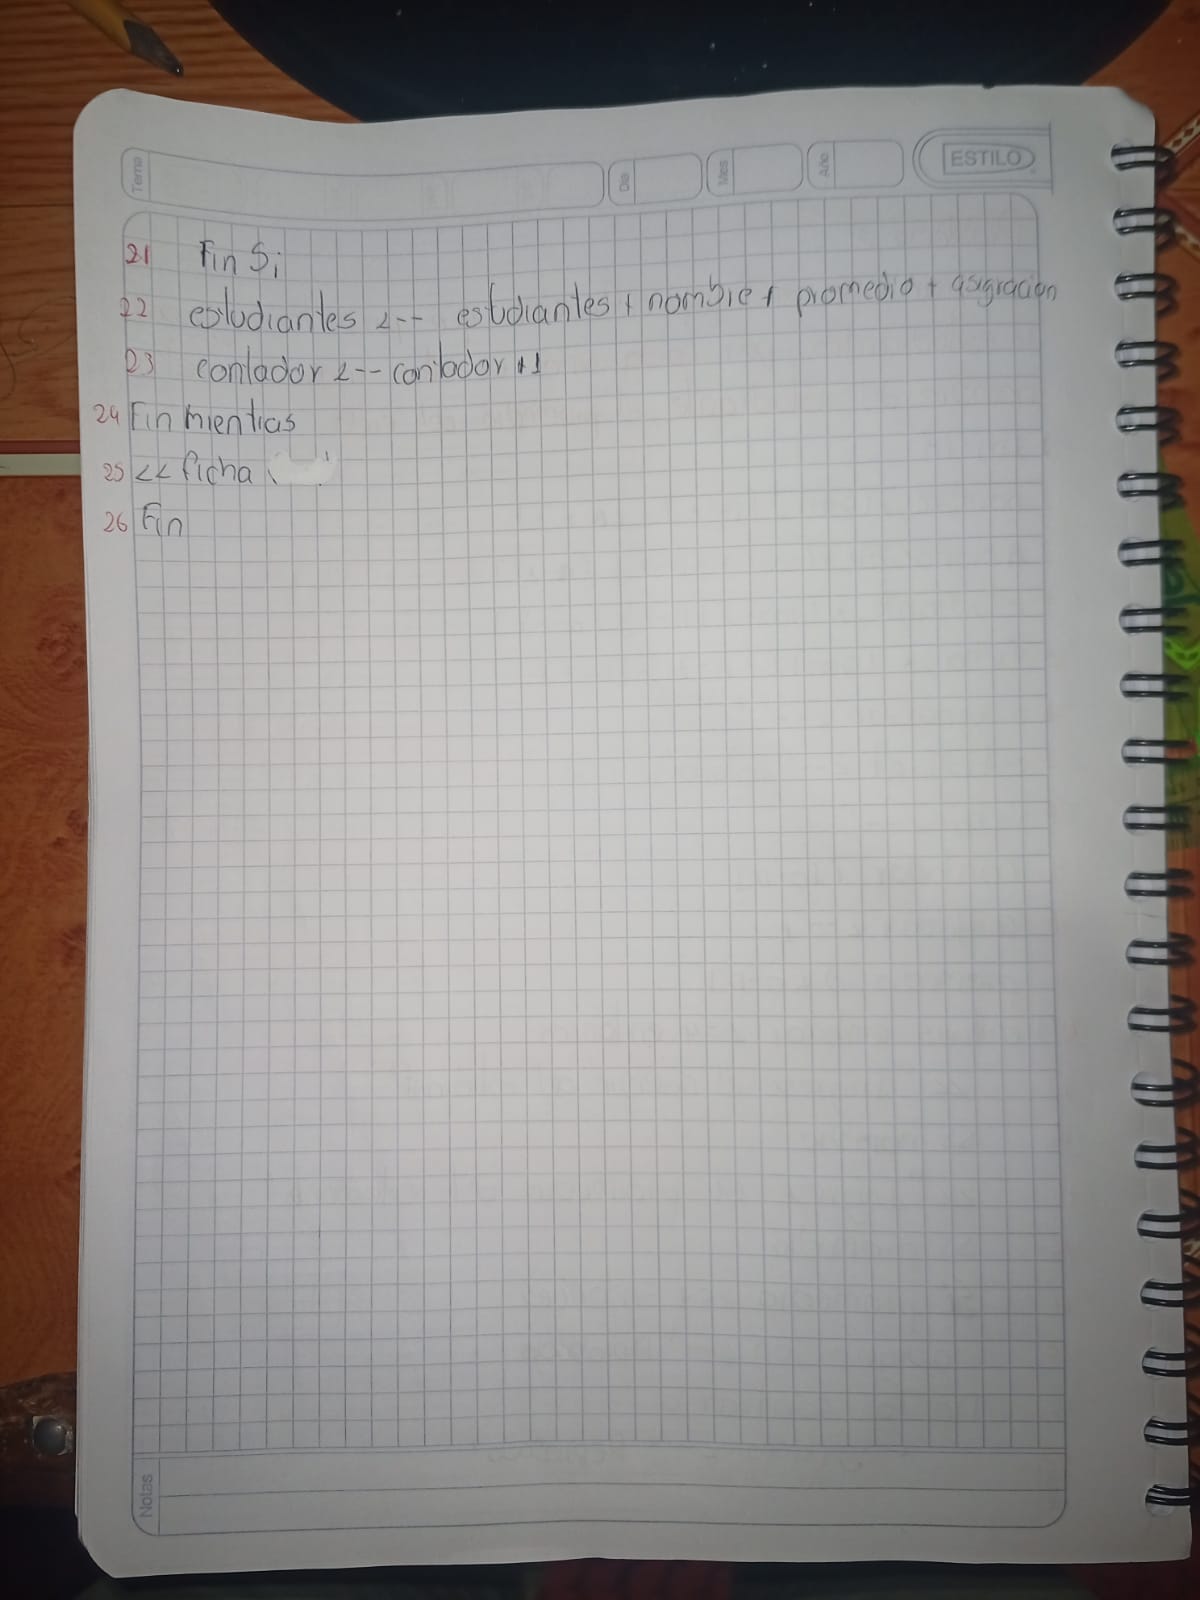 Tema Dia Mes Año ESTILO
21 Fin Si
22 estudiantes <-- estudiantes + nombre + promedio + asignacion
23 contador <-- contador +1
24 Fin mientras
25 << ficha
26 Fin
Notas